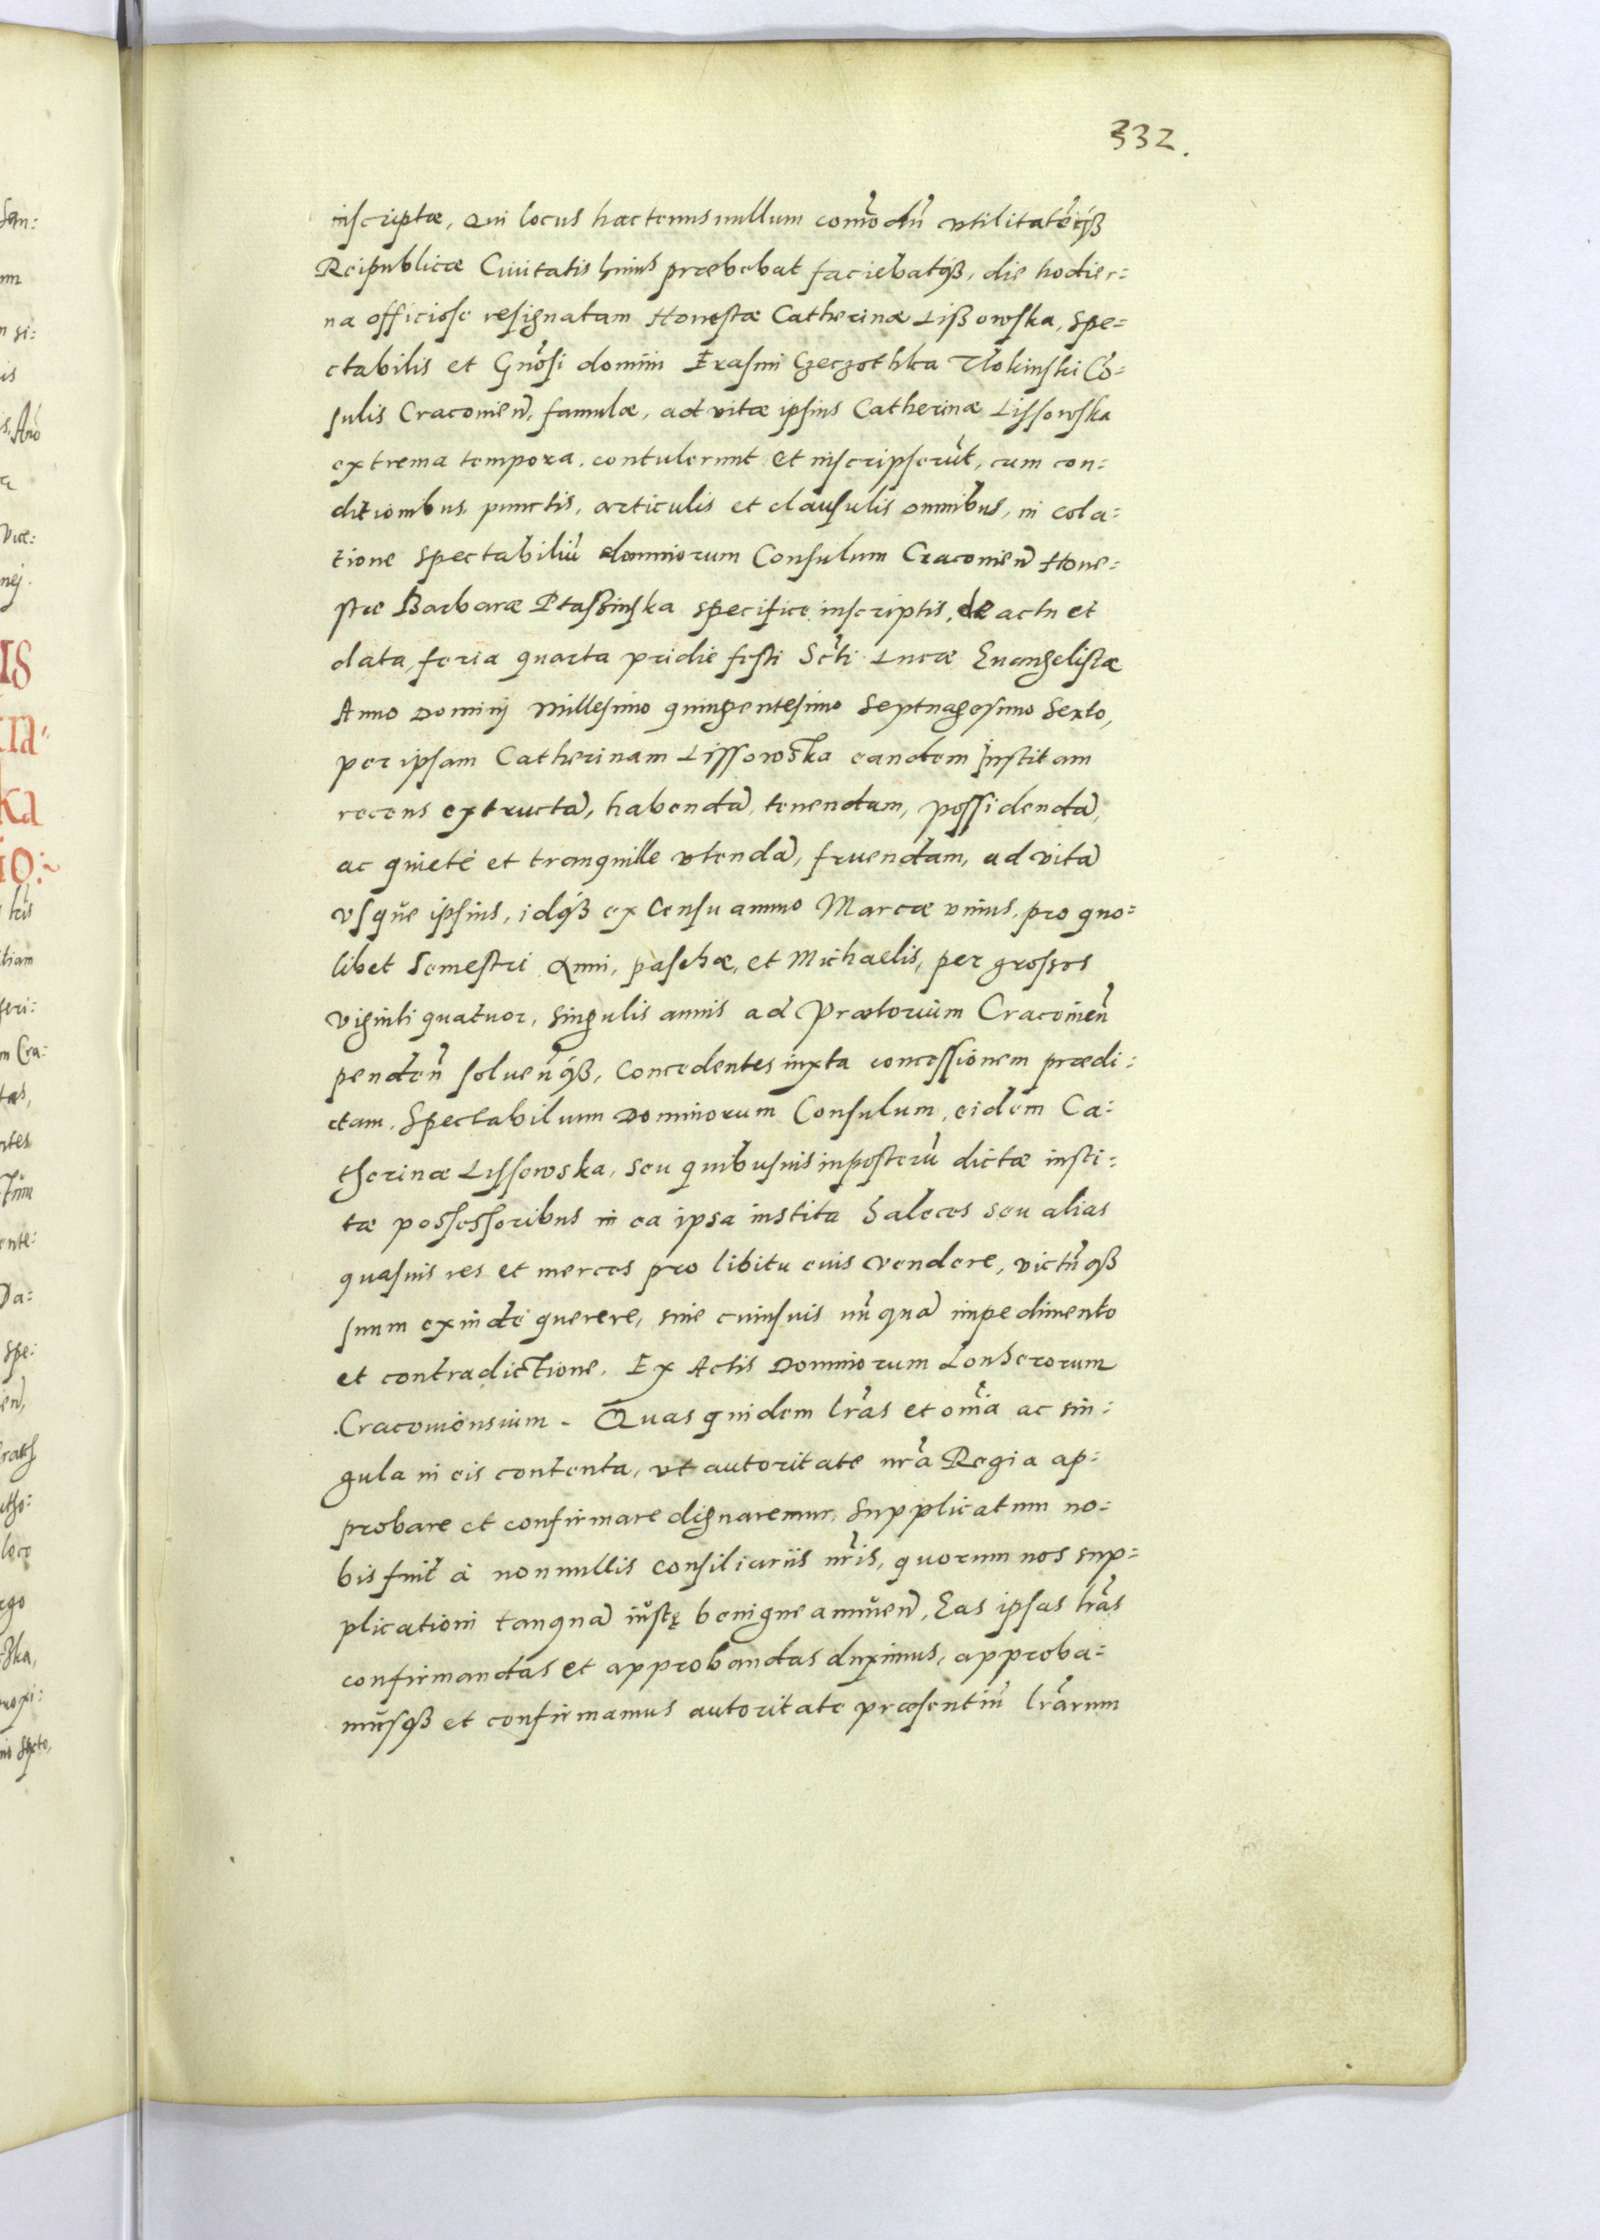 332.
inscriptæ, Qui locus hactenus nullum com̃odũ vtilitatẽq́ꝫ
Reipublicæ Ciuitatis huius præbebat faciebatqꝫ, die hodier:
na officiose resignatam Honestæ Catherinæ Lißowska, Spe=
ctabilis et Gñosi domini Erasmi Czeczothka Tłokinski Cõ=
sulis Cracovieñ, famulæ, ad vitæ ipsius Catherinæ Lissowska
extrema tempora, contulerunt et inscripserũt, cum con=
ditionibus punctis, articulis et clausulis omnibus, in cola=
tione Spectabiliũ dominorum Consulum Cracovieñ Hone=
stæ Barbaræ Ptaßinska specifice inscriptis, de actu et
data feria quarta pridie festi Scti Lucæ Euangelistæ
Anno Dominij Millesimo quingentesimo Septuagesimo Sexto,
per ipsam Catherinam Lissowska eandem Institam
recens extructã, habendã, tenendam, possidendã,
ac quietè et tranquille vtendã, fruendam, ad vitã
vsque ipsius, idqꝫ ex Censu annuo Marcæ vnius, pro quo=
libet Semestri Anni, paschæ, et Michaelis, per grossos
viginti quatuor, singulis annis ad Prætorium Cracovieñ
pendeñ solueñqꝫ, Concedentes iuxta concessionem prædi:
ctam, Spectabilium Dominorum Consulum, eidem Ca:
therinæ Lissowska, seu quibusuis inposterũ dictæ insti:
tæ possessoribus in ea ipsa instita Saleces seu alias
quasuis res et merces pro libitu euis vendere, victũqꝫ
suum exinde querere, sine cuiusuis vnquã impedimento
et contradictione. Ex Actis Dominorum Lonherorum
Cracouiensium. Quas quidem lr̃as et om̃ia ac sin:
gula in eis contenta, vt autoritate nr̃a Regia ap=
probare et confirmare dignaremur, Supplicatum no=
bis fuit à nonnullis Consiliariis nr̃is, quorum nos sup=
plicationi tanquã iustę benigne annueñ, Eas ipsas lr̃as
confirmandas et approbandas duximus, approba=
musqꝫ et confirmamus autoritate præsentiũ lr̃arum